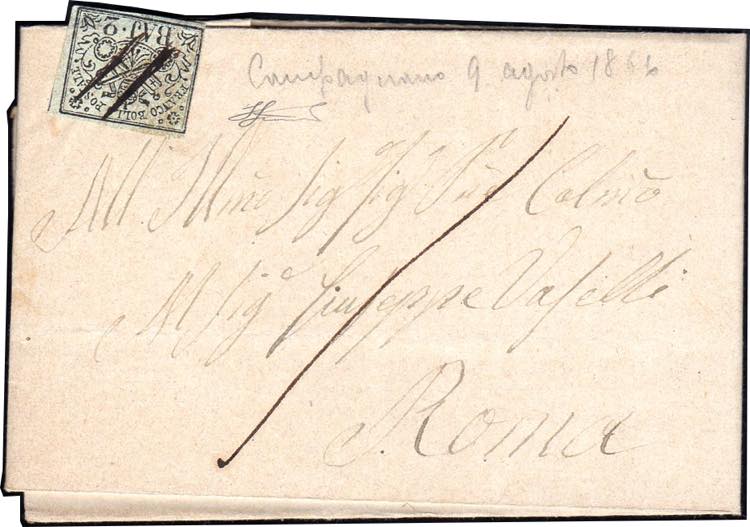 BAJ. 2
FRANCO BOLLO POSTALE
Campagnano 9 agosto 186
All' Illmo Sig Sig Colmo
Al Sigr Giuseppe Vaselli
Roma